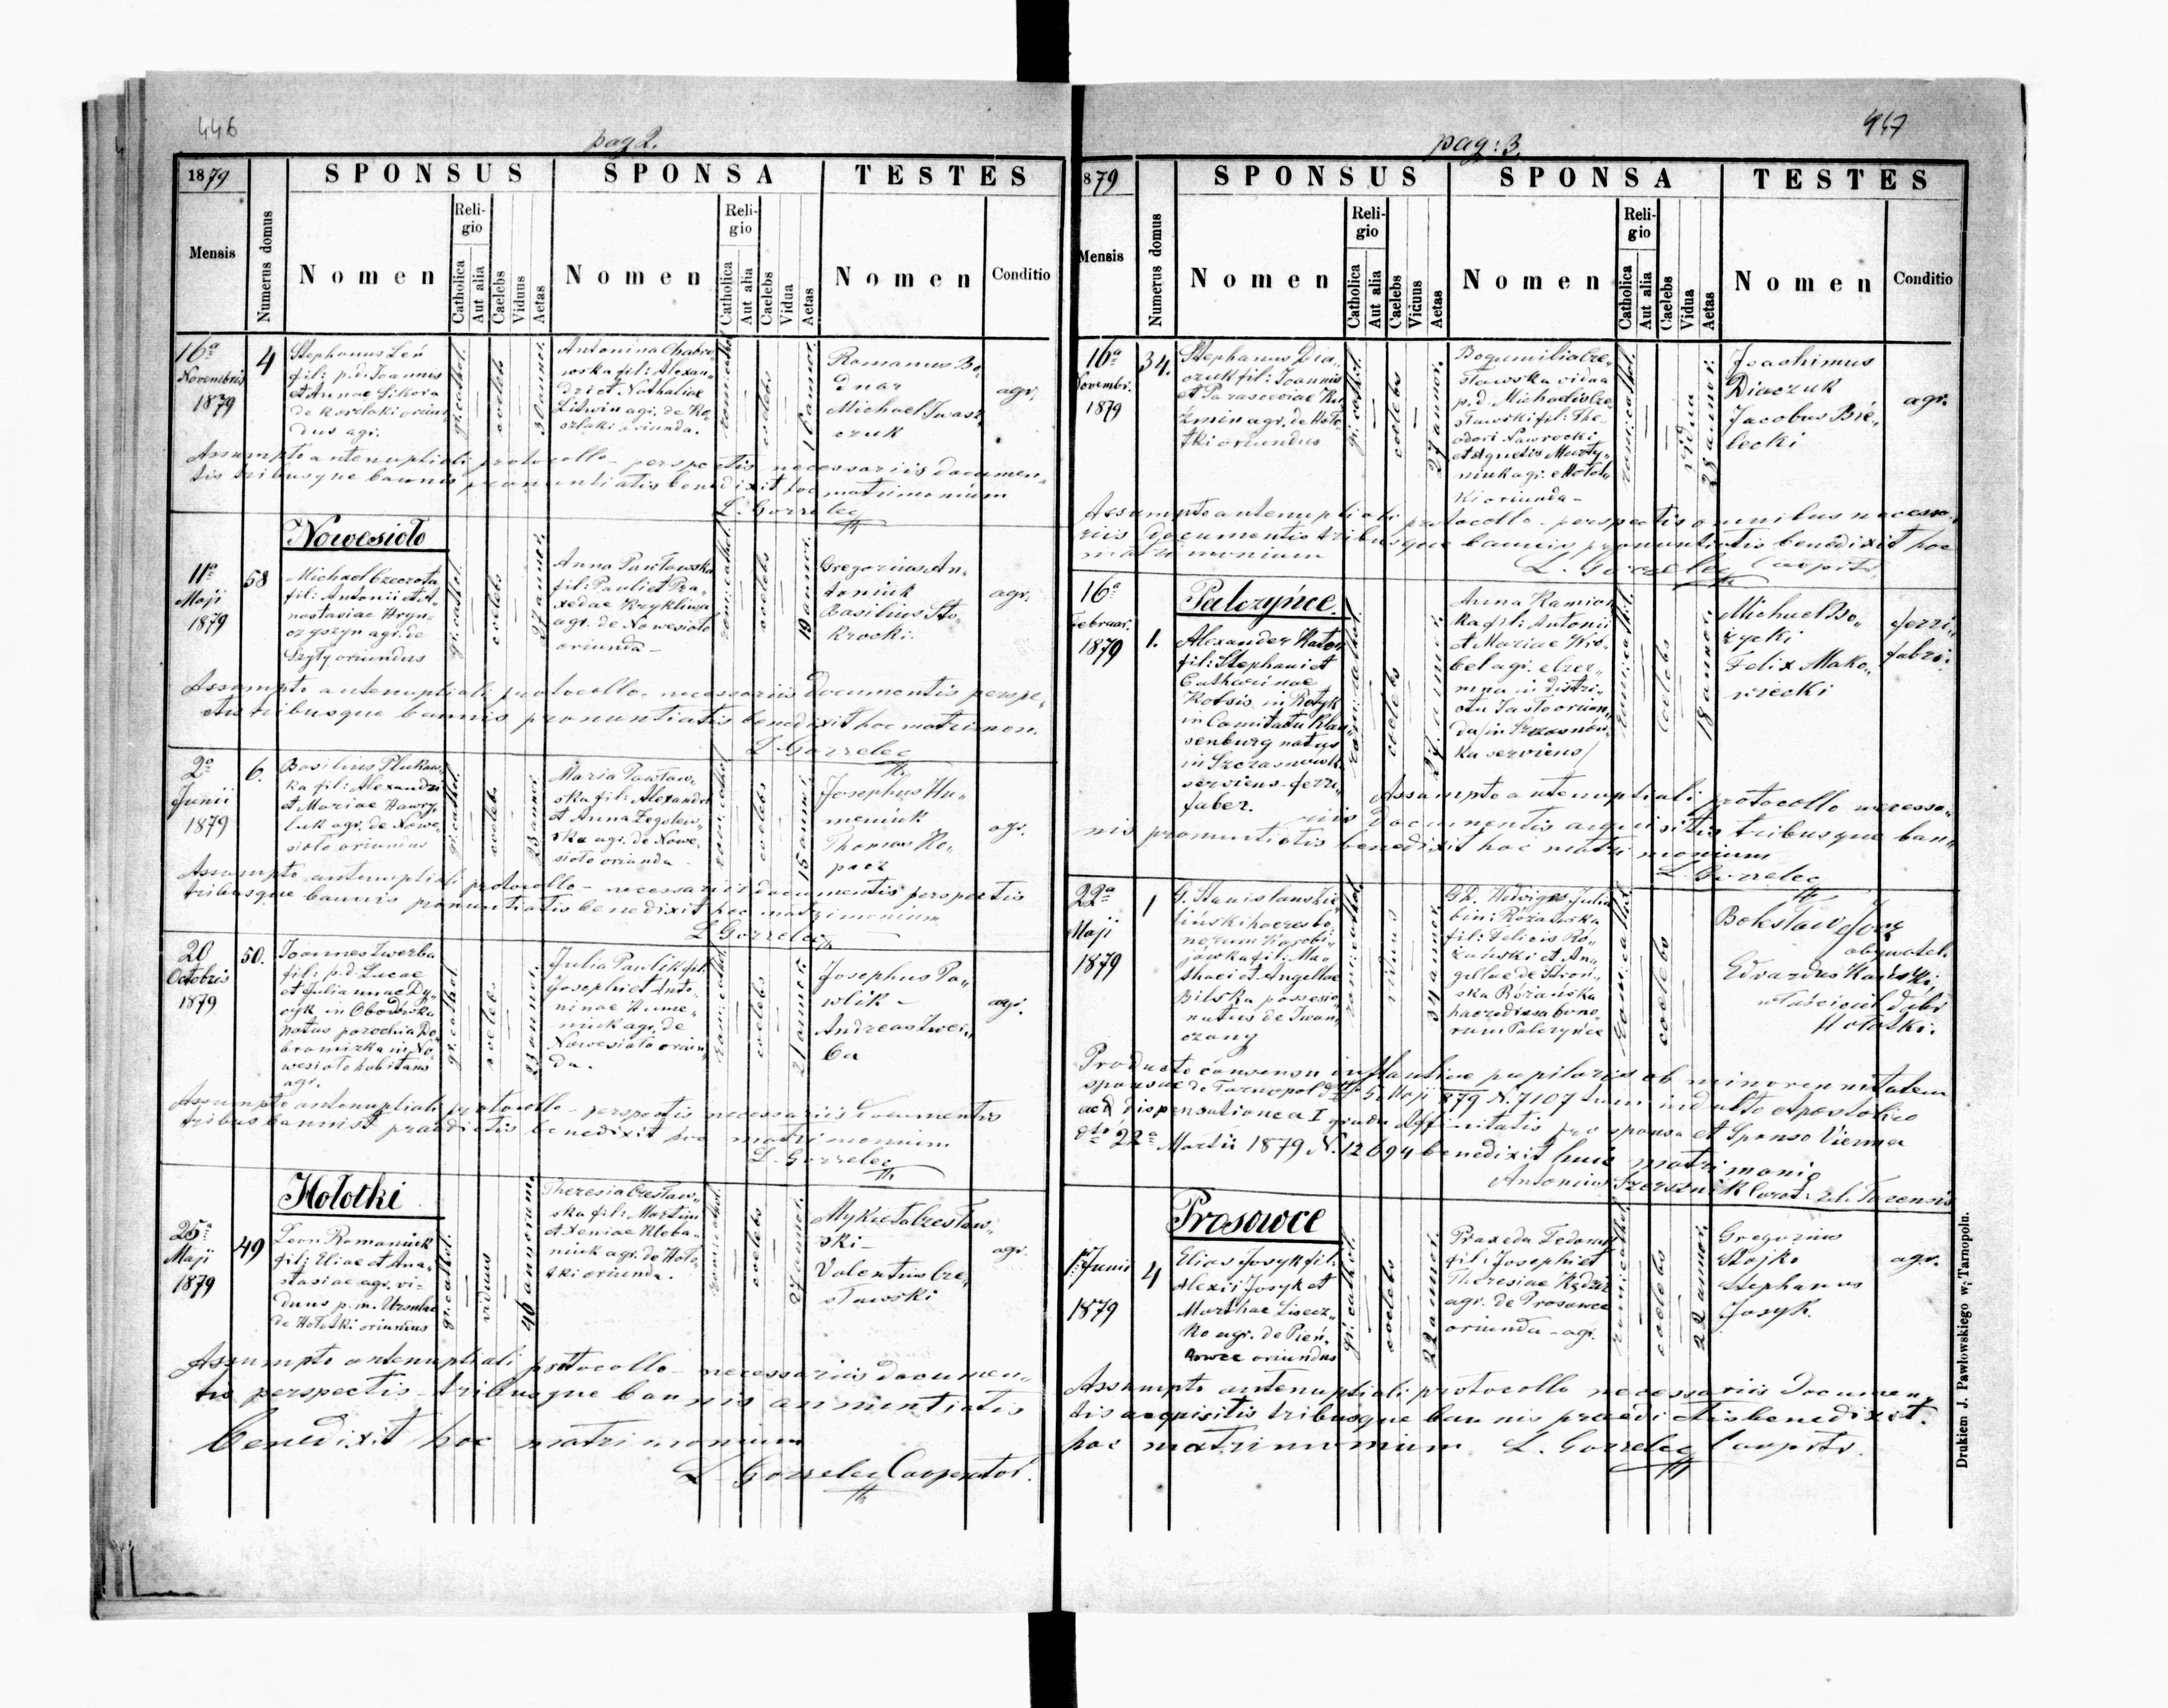 446
pag 2.
1879
SPONSUS
SPONSA
TESTES
Mensis
Numerus domus
Nomen
Religio
Catholica
Aut alia
Caelebs
Viduus
Aetas
Nomen
Religio
Catholica
Aut alia
Caelebs
Vidua
Aetas
Nomen
Conditio
16a
Novembris
1879
4
Stephanus Leń
fil: p.d. Joannis
et Annae Sikora
de Koszlaki oriun
dus agr.
gr. cathol.
coelebs
30 annor.
Antonina Chabro
wska fil: Alexan„
dri et Nathaliae
Litwin agr. de Ko„
szlaki oriunda.
rom: cathol.
coelebs
16 annor.
Romanus Bo„
dnar
Michael Iwasz„
czuk
agr.
Assumpto antenuptiali protocollo - perspectis necessariis documen„
tis tribusque bannis pronuntiatis benedixit hoc matrimonium
L. Gorzelec
Nowesioło
11a
Maji
1879
58
Michael Czeorota
fil: Antonii et A„
nastasiae Hryn„
czyszyn agr. de
Szyły oriundus
gr. cathol.
coelebs
27 annor.
Anna Pawłowska
fil: Pauli et Pra„
xedae Krykliwa
agr. de Nowesioło
oriunda -
rom: cathol.
coelebs
19 annor.
Gregorius An„
toniuk
Basilius Sto„
krocki.
agr.
Assumpto antenuptiali protocollo - necessariis documentis perspe„
ctis tribusque bannis pronuntiatis benedixit hoc matrimon.
L. Gorzelec
2a
Junii
1879
6.
Basilius
ka fil: Alexandri
et Mariae Hawry
luk agr. de Nowe„
sioło oriundus
gr. cathol.
coelebs
23 annor.
Maria Pawław„
ska fil: Alexandri
et Anna
ska agr. de Nowe„
sioło oriunda -
rom: cathol.
coelebs
15 annor.
Josephus Hu„
meniuk
Thomas Ko„
pacz
agr.
Assumpto antenuptiali protocollo - necessariis documentis perspectis
tribusque bannis pronuntiatis benedixit hoc matrimonium
L. Gorzelec
20
Octobris
1879
50.
Joannes Zwerba
fil: p.d. Lucae
et Juliannae Dy„
czyk in Obodówka
natus parochia Do„
bromirka in No„
wesioło habitans
agr.
gr. cathol.
coelebs
23 annor.
Julia Pawlik fil:
Josephi et Anto„
ninae Hume„
niuk agr. de
Nowesioło oriun„
da.
rom: cathol.
coelebs
21 annor.
Josephus Pa„
wlik -
Andreas Zwer„
ba
agr.
Assumpto antenuptiali protocollo - perspectis necessariis documentis
tribus bannist praedictis benedixit hoc matrimonium
L. Gorzelec
Hołotki
25a
Maji
1879
49
Leon Romaniuk
fil: Eliae et Ana„
stasiae agr. vi„
duus p.m. Ursulae
de Hołotki oriundus
gr. cathol.
viduus
46 annorum.
Theresia Czesław„
ska fil: Martini
et Xeniae Chleba„
niuk agr. de Hoło„
tki oriunda.
rom: cathol.
coelebs
27 annor.
Mykieta Czesław„
ski -
Valentius Cze„
sławski
agr.
Assumpto antenuptiali protocollo - necessariis documen„
tis perspectis - tribusque bannis annuntiatis
benedixit hoc matrimonium
L. Gorzelec Cooperator.
447
pag: 3.
879
SPONSUS
SPONSA
TESTES
Mensis
Numerus domus
Nomen
Religio
Catholica
Aut alia
Caelebs
Viduus
Aetas
Nomen
Religio
Catholica
Aut alia
Caelebs
Vidua
Aetas
Nomen
Conditio
16a
Novembr:
1879
34.
Stephanus Dia„
czuk fil: Joannis
et Parasceviae Ku
zmin agr. de Hoło„
tki oriundus
gr. cathol.
coelebs
27 annor.
Bogumilia Cze„
sławska vidua
p.d. Michaelis Cze„
sławski fil: The„
odori Nawrocki
et Agnetis Marty„
niuk agr. e Hołot„
ki oriunda -
rom: cathol.
vidua
28 annor.
Joachimus
Diaczuk
Jacobus Bie„
lecki
agr.
Assumpto antenuptiali protocollo - perspectis omnibus necessa„
riis documentis tribusque bannis pronuntiatis benedixit hoc
matrimonium
L. Gorzelec Cooptr.
Palczyńce
16a
Februar.
1879
1.
Alexander
fil: Stephani et
Catharinae
Kotsis in Rotyk
in Comitatu Klau
senburg natus
in
serviens - ferri„
faber.
rom: cathol.
coelebs
27 annor.
Anna Kamion
ka fil: Antonii
et Mariae Wró„
bel agr. e Czer„
mna in distri„
ctu Jasło oriun„
da /in
ka serviens/
rom: cathol.
coelebs
18 annor.
Michael Bo„
życki
Felix Mako„
wiecki
ferri„
fabri.
Assumpto antenuptiali protocollo necessa„
riis documentis acquisitis tribusque ban„
nis pronuntiatis benedixit hoc matrimonium
L. Gorzelec
22a
Maji
1879
1
G. Stanislaus Kie
liński haeres bo
norum
fil: Ma„
thaei et Angellae
Bilska possesio„
natus de Iwan„
czany
rom: cathol.
viduus
34 annor.
Gr. Hedvigis Julia
bin: Różańska
fil: Felicis Ró„
żański et An„
gellae de Stroń„
ska Różańska
haeredissa bono„
rum Palczyńce
rom: cathol.
coelebs
Bolesław
obywatel.
Edvardus
właściciel dóbr
Hołotki.
Producto consensu instantiae pupilaris ob minorennitatem
sponsae de Tarnopol dto 5 Maji 879 N. 7107 tum indulto Apostolico
aed dispensatione a I gradu Affinitatis pro sponsa et Sponso Vienna
dto 22a Martii 1879 N. 12694 benedixit huic matrimonio
Antonius Szersznik
Prosowce
1. Junii
1879
4
Elias Josyk fil:
Alexii Josyk et
Marthae Lisecz„
ko agr. de Pień„
kowce oriundus
gr. cathol.
coelebs
22 annor.
Praxeda Fedorus
fil: Josephi et
Theresiae
agr. de Prosowce
oriunda - agr.
rom: cathol.
coelebs
22 annor.
Gregorius
Stojko
Stephanus
Josyk.
agr.
Assumpto antenuptiali protocollo necessariis documen„
tis acquisitis tribusque bannis praedictis benedixit
hoc matrimonium L. Gorzelec Cooptr.
Drukiem J. Pawłowskiego w Tarnopolu.